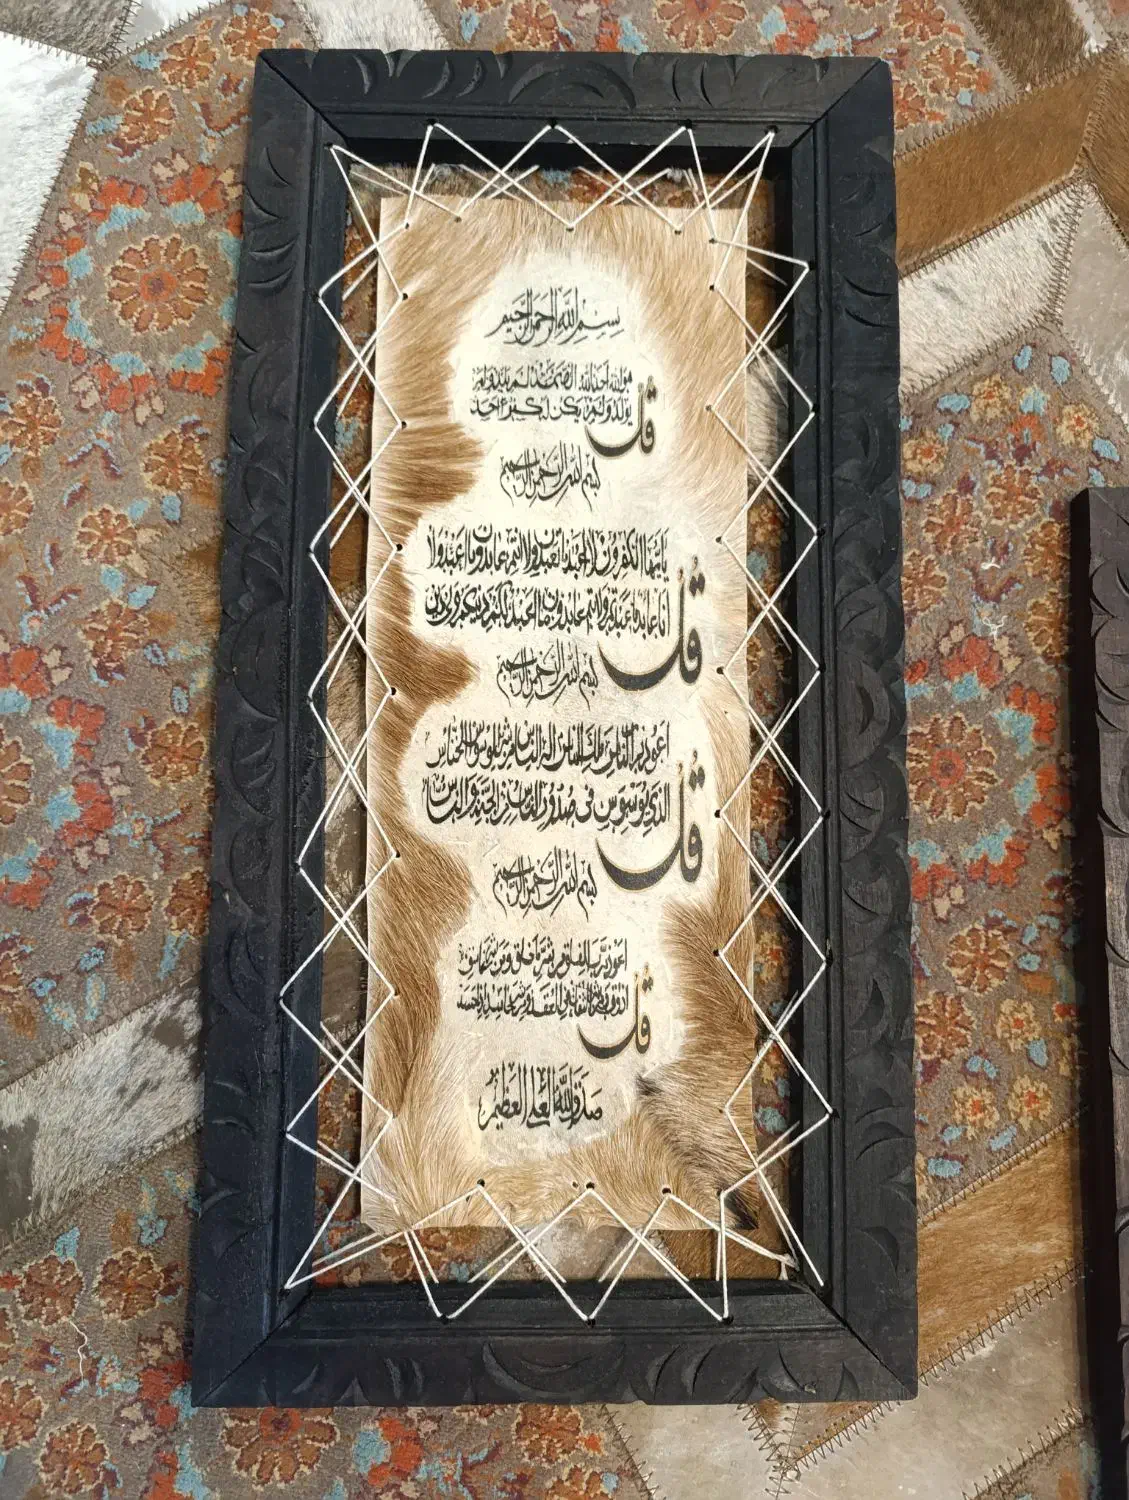 بسم الله الرحمن الرحيم
قل
هو الله احد الله الصمد لم يلد ولم
يولد ولم يكن له كفوا احد
بسم الله الرحمن الرحيم
قل
يا يها الكفرون لا اعبد ما تعبدون ولا انتم عابدون ما اعبد ولا
انا عابد ما عبدتم ولا انتم عابدون ما اعبد لكم دينكم ولي دين
بسم الله الرحمن الرحيم
قل
اعوذ برب الناس ملك الناس اله الناس من شر الوسواس الخناس
الذي يوسوس في صدور الناس من الجنة والناس
بسم الله الرحمن الرحيم
قل
اعوذ برب الفلق من شر ما خلق ومن شر غاسق
اذا وقب ومن شر النفاثات في العقد ومن شر حاسد اذا حسد
صدق الله العلي العظيم